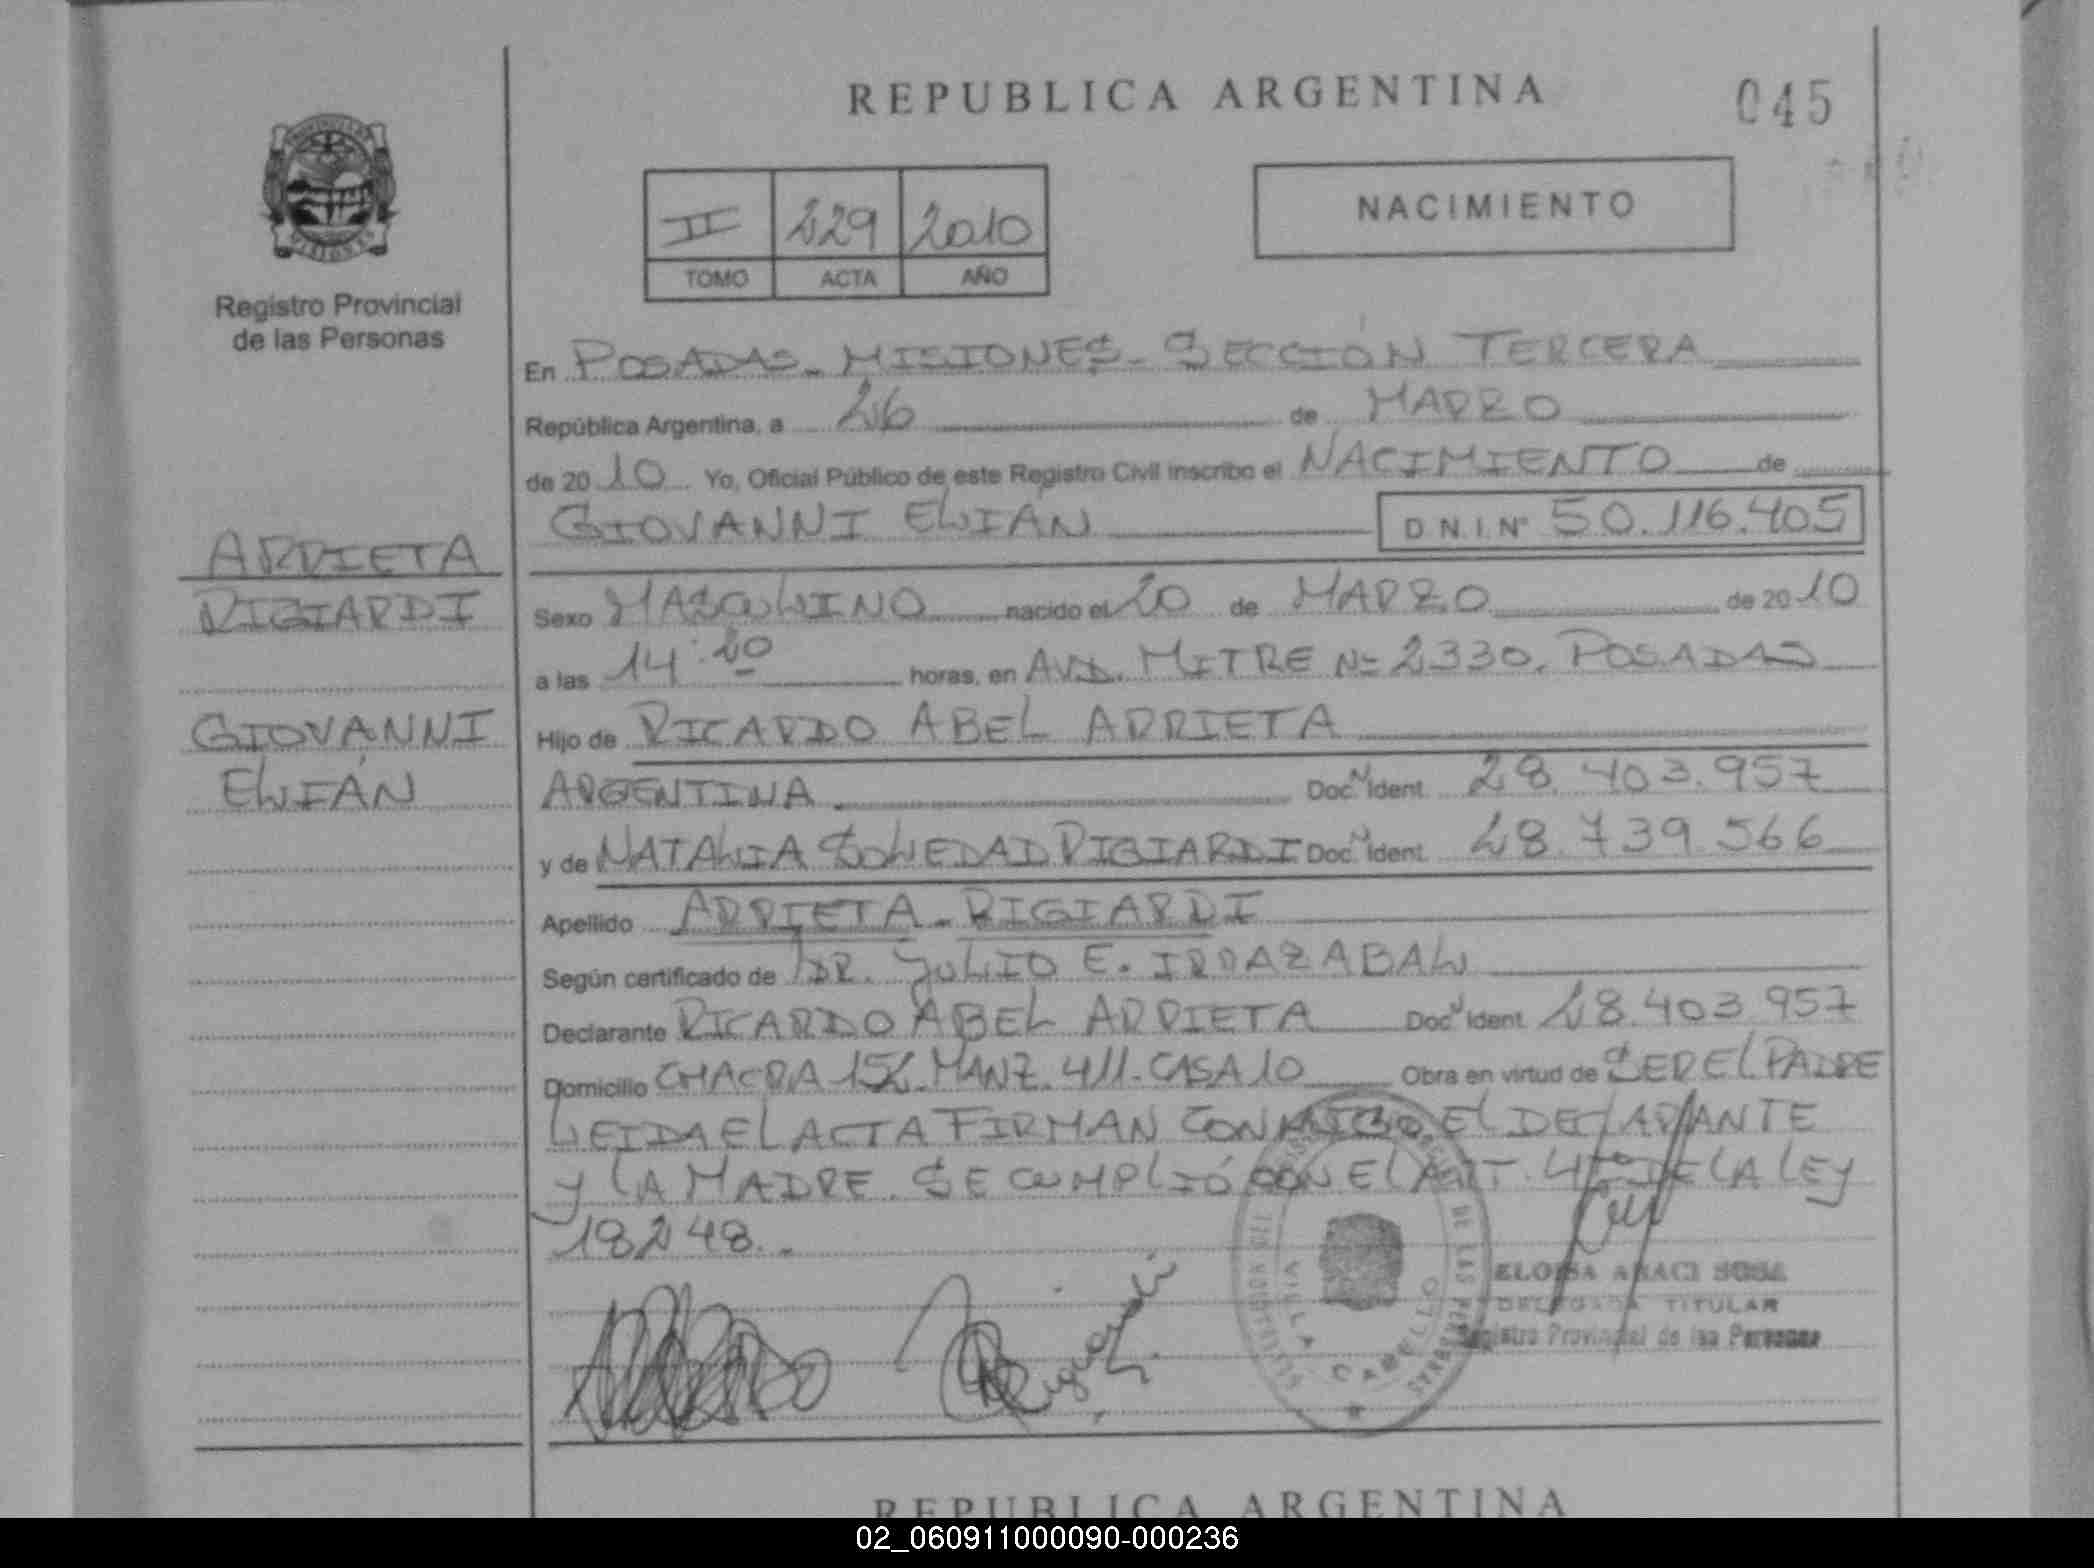 REPUBLICA ARGENTINA
045
II 229 2010
TOMO ACTA AÑO
NACIMIENTO
Registro Provincial
de las Personas
En POSADAS - MISIONES - SECCIÓN TERCERA
República Argentina, a 26 de MARZO
de 2010 Yo, Oficial Público de este Registro Civil inscribo el NACIMIENTO de
GIOVANNI ELIÁN D.N.I. Nº 50.116.405
ARRIETA
RIGIARDI
GIOVANNI
ELIÁN
Sexo MASCULINO nacido el 20 de MARZO de 2010
a las 14:20 horas, en AVD. MITRE Nº 2330. POSADAS
Hijo de RICARDO ABEL ARRIETA
ARGENTINA Doc. N Ident. 28.403.957
y de NATALIA SOLEDAD RIGIARDI Doc. N Ident. 28.739.566
Apellido ARRIETA - RIGIARDI
Según certificado de DR. JULIO E. IRRAZABAL
Declarante RICARDO ABEL ARRIETA Doc. N Ident. 28.403.957
Domicilio CHACRA 152. MANZ. 411. CASA 10 Obra en virtud de SER EL PADRE
LEIDA EL ACTA FIRMAN CONMIGO EL DECLARANTE
Y LA MADRE. SE CUMPLIÓ CON EL ART. DE LA LEY
18248.
VILLA CABELLO
ELOISA ARACI SOSA
DELEGADA TITULAR
Registro Provincial de las Personas
REPUBLICA ARGENTINA
02_060911000090-000236